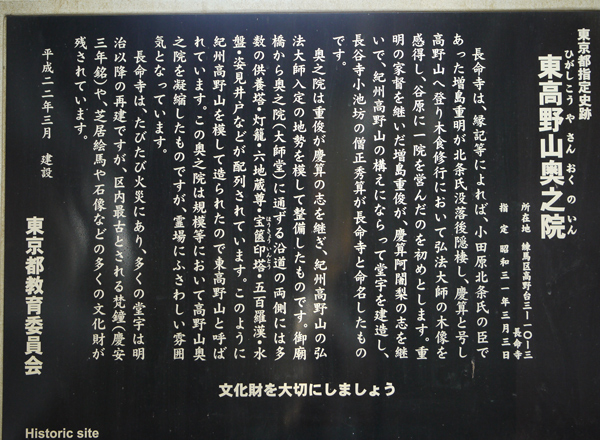 東京都指定史跡
東高野山奥之院
ひがしこうやさんおくのいん
所在地 練馬区高野台三―一〇―三
長命寺
指定 昭和三一年三月三日
長命寺は、縁記等によれば、小田原北条氏の臣で
あった増島重明が北条氏没落後隠棲し、慶算と号し
高野山へ登り木食修行において弘法大師の木像を
感得し、谷原に一院を営んだのを初めとします。重
明の家督を継いだ増島重俊が、慶算阿闍梨の志を継
いで、紀州高野山の構えにならって堂宇を建造し、
長谷寺小池坊の僧正秀算が長命寺と命名したもの
です。
奥之院は重俊が慶算の志を継ぎ、紀州高野山の弘
法大師入定の地勢を模して整備したものです。御廟
橋から奥之院（大師堂）に通ずる沿道の両側には多
数の供養塔・灯籠・六地蔵尊・宝篋印塔・五百羅漢・水
ほうきょういんとう
盤・姿見井戸などが配列されています。このように
紀州高野山を模して造られたので東高野山と呼ば
れています。この奥之院は規模等において高野山奥
之院を凝縮したものですが、霊場にふさわしい雰囲
気となっています。
長命寺は、たびたび火災にあり、多くの堂宇は明
治以降の再建ですが、区内最古とされる梵鐘（慶安
三年銘）や、芝居絵馬や石像などの多くの文化財が
残されています。
平成二二年三月 建設
東京都教育委員会
文化財を大切にしましょう
Historic site